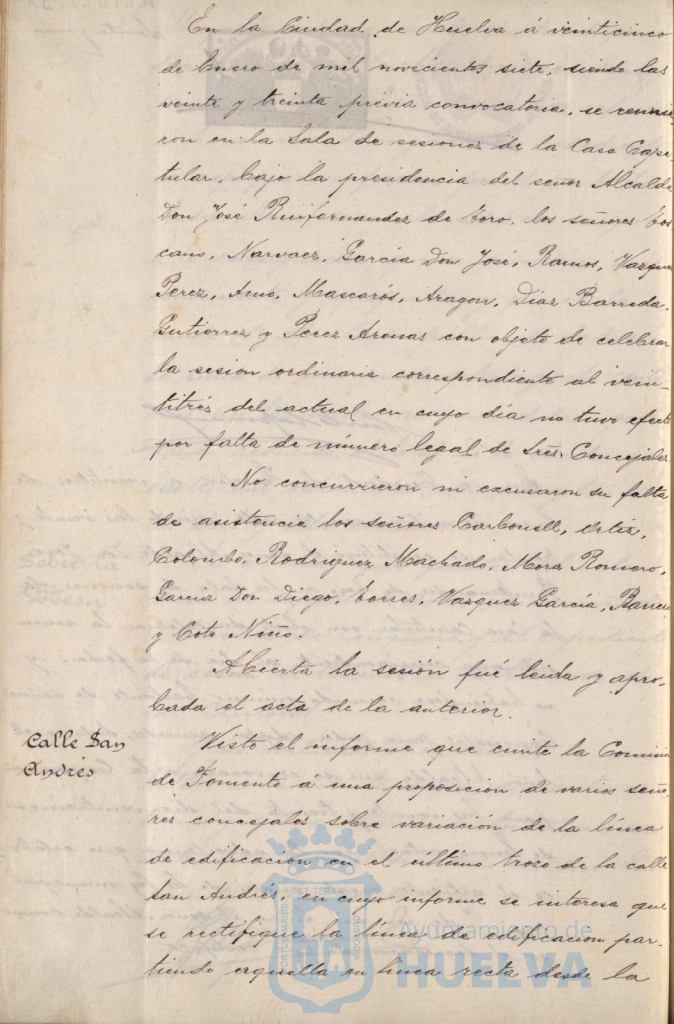 En la Ciudad de Huelva á veinticinco
de Enero de mil novecientos siete, siendo las
veinte y treinta previa convocatoria, se reunie
ron en la Sala de sesiones de la Casa Capi-
tular, bajo la presidencia del señor Alcalde
Don José Ruifernandez de Toro, los señores Tos
cano, Narvaez, Garcia Don José, Ramos, Vazquez
Perez, Amo, Mascarós, Aragon, Diaz Barreda,
Gutierrez y Perez Arenas con objeto de celebrar
la sesion ordinaria correspondiente al vein-
titrés del actual en cuyo día no tuvo efecto
por falta de número legal de Sres. Concejales.
No concurrieron ni excusaron su falta
de asistencia los señores Carbonell, Ortiz,
Colombo, Rodriguez Machado, Mora Romero,
Garcia Don Diego, Torres, Vazquez García, Barrera
y Coto Niño.
Abierta la sesión fué leida y apro-
bada el acta de la anterior.
Calle San
Andrés
Visto el informe que emite la Comision
de Fomento á una proposicion de varios seño-
res concejales sobre variación de la línea
de edificacion en el último trozo de la calle
San Andrés, en cuyo informe se interesa que
se rectifique la línea de edificacion par-
tiendo aquella en línea recta desde la
Ayuntamiento de
HUELVA